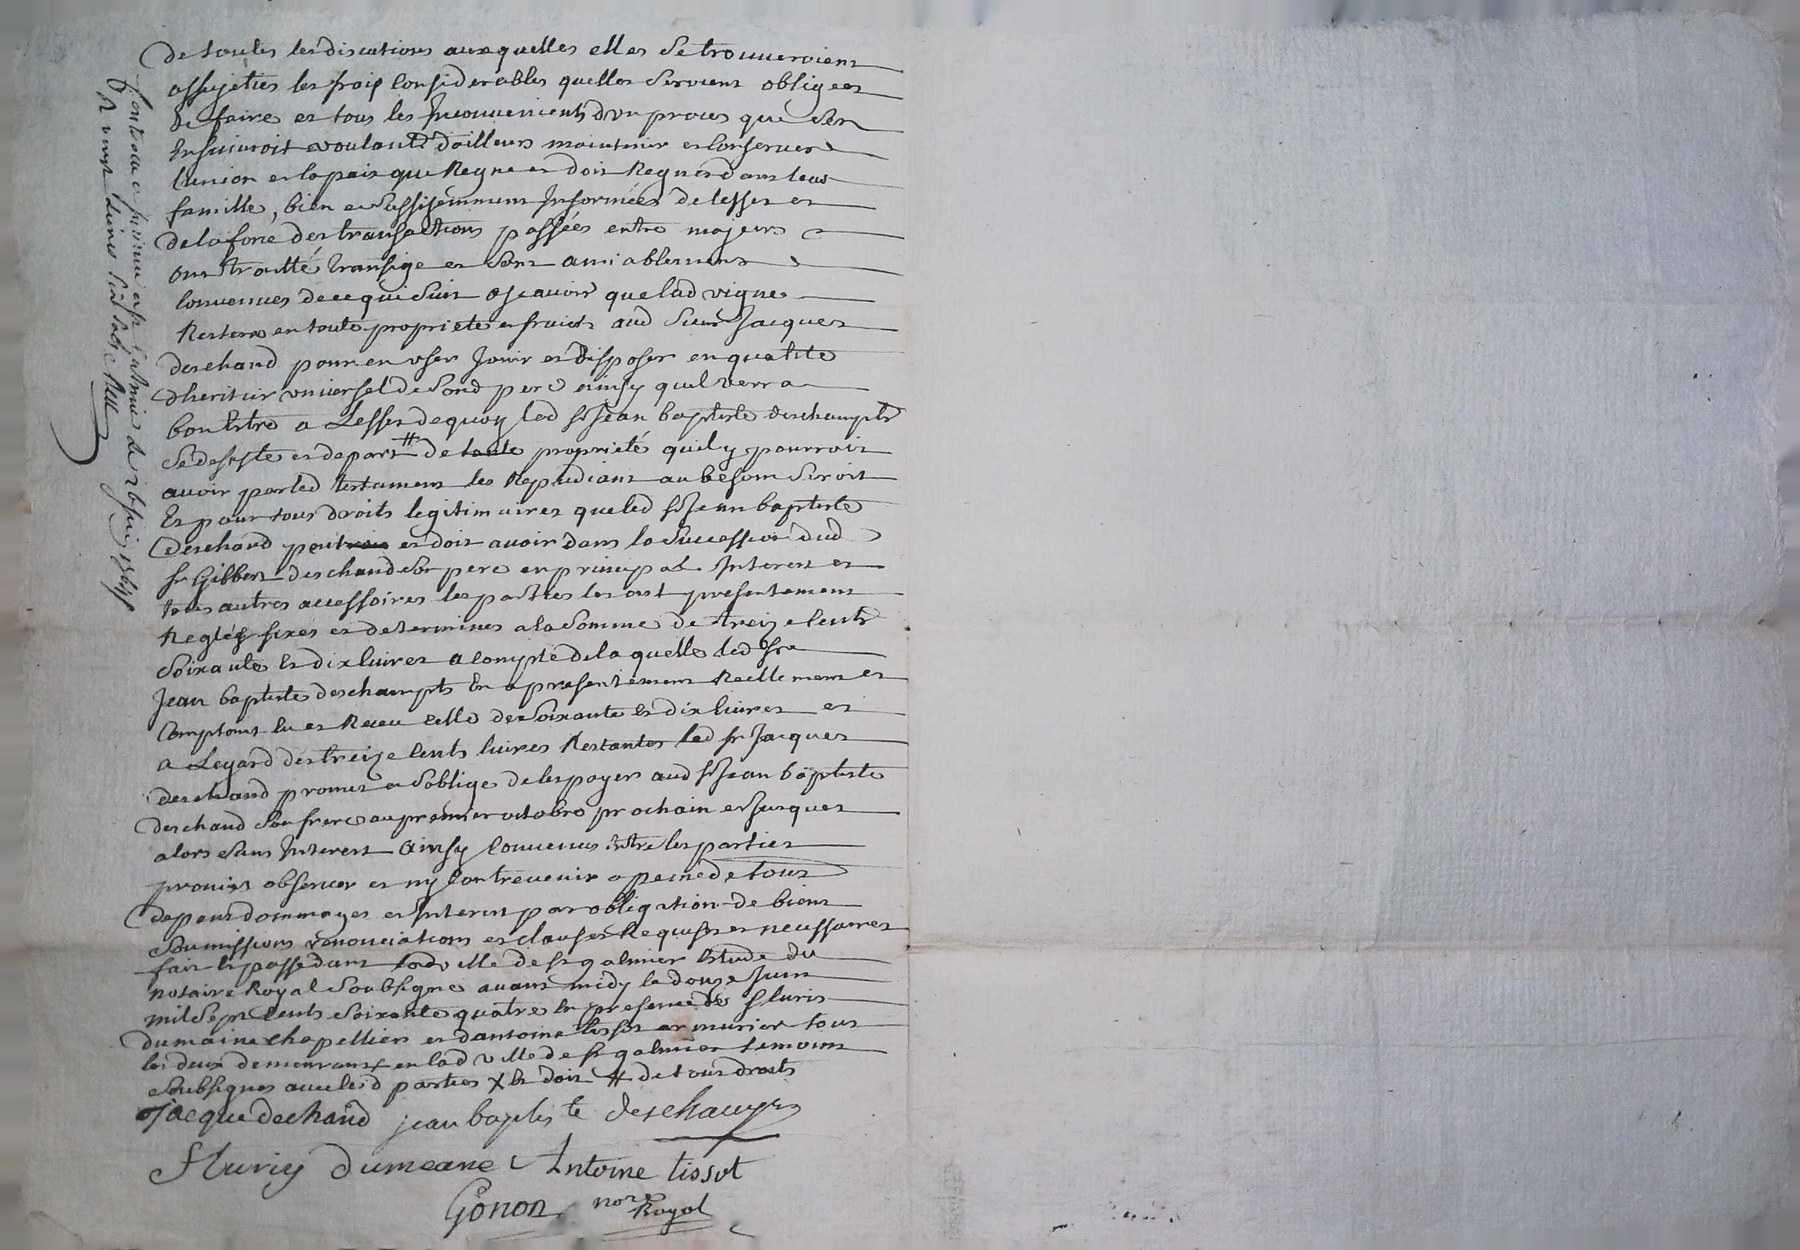 de toutes les discutions auxquelles elles se trouveroient
assujeties les frais considerables quelles seroient obligees
de faire et tous les inconvenients dun proces que sen
ensuivroit voulant dailleurs maintenir et conserver
lunion et la paix que regne et doit regner dans leur
famille, bien et suffisemment informées de lesset et
de la force des transactions passées entre majeurs
ont traitté transige et sont amiablement
convenues de ce qui suit scavoir que lad vigne
restera en toute propriete et fruits aud sieur Jacques
deschand pour en user jouir et disposer en qualite
dheritier universel de sond pere ainsy quil verra
bon estre a lesset de quoy led sr Jean baptiste deschampts
se desiste et depart # de toute propriété quil y pourroit
avoir par led testament les repudiant au besoin seroit
et pour tous droits legitimaires que led sr Jean baptiste
deschand peut et doit avoir dans la succession dud
sr Gilbert deschand son pere en principal interest et
tous autres accessoires les parties les ont presentement
reglés fixés et determines a la somme de treize cents
soixante et dix livres a compte de la quelle led sr
Jean baptiste deschampts en a presentement reellement et
comptant eu et receu celle de soixante et dix livres et
a legard des treize cents livres restantes led sr Jacques
deschand promet et soblige de les payer aud sr Jean baptiste
deschand son frere au premier octobre prochain et jusques
alors sans interest ainsy convenus entre les parties
promis observer et ny contrevenir a peine de tous
depens dommages et interest par obligation de biens
soumissions renonciations et clauses requises et necessaires
fait et passé dans lad ville de st galmier estude du
notaire Royal soubsigne avant midy le douze juin
mil sept cents soixante quatre en presence de fluris
dumaine chapellier et dantoine tissot armurier tous
les deux demeurant en lad ville de st galmier temoins
soubsignes avec lesd parties X et doit # de tous droits
Jacque dechand jean baptiste deschamps
fluriy dumeane Antoine tissot
Gonon nore
Royal